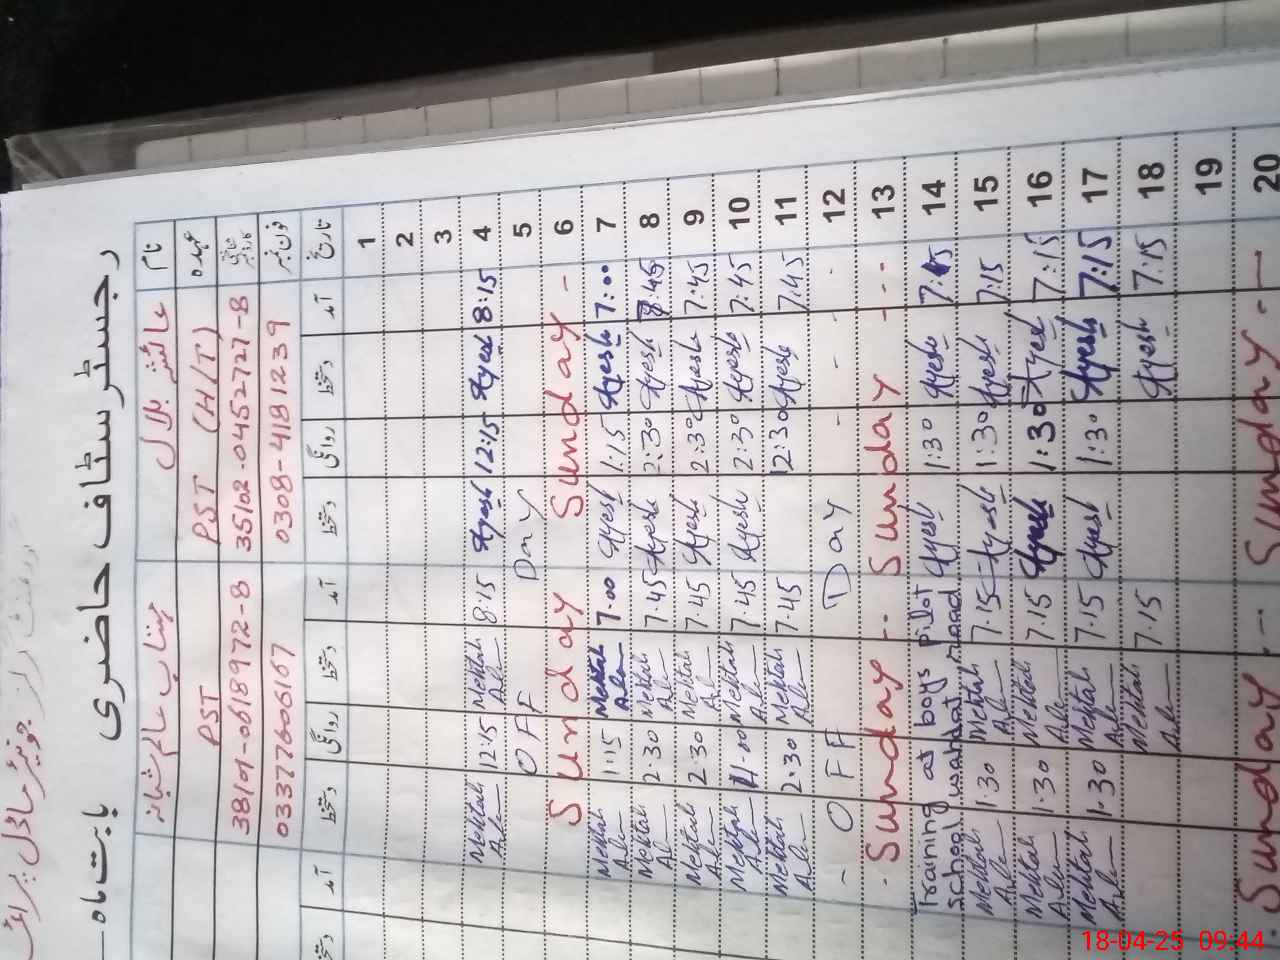 رجسٹر سٹاف حاضری بابت ماہ
نام عائشہ بلال مہتاب عالم شبانہ
عہدہ PST (H/T) PST
شناختی کارڈ نمبر 35102-0452727-8 38101-0618972-8
فون نمبر 0308-4181239 03377606167
تاریخ آمد دستخط روانگی دستخط آمد دستخط روانگی دستخط آمد دستخط
1
2
3
4 8:15 Ayesh 12:15 Ayesh 8:15 Mehtab Alm 12:15 Mehtab Alm
5 OFF Day
6 Sunday - Sunday
7 7:00 Ayesh 1:15 Ayesh 7.00 Mehtab Alm 1:15 Mehtab Alm
8 7:45 Ayesh 2:30 Ayesh 7.45 Mehtab Alm 2.30 Mehtab Alm
9 7:45 Ayesh 2:30 Ayesh 7.45 Mehtab Alm 2.30 Mehtab Alm
10 7:45 Ayesh 2:30 Ayesh 7.45 Mehtab Alm 11.00 Mehtab Alm
11 7:45 Ayesh 12:30 7.45 Mehtab Alm 2.30 Mehtab Alm
12 - OFF Day - - -
13 Sunday -- Sunday ---
14 7:15 Ayesh 1:30 Ayesh Training at boys pilot
school wahdat road
15 7:15 Ayesh 1:30 Ayesh 7.15 Mehtab Alm 1.30 Mehtab Alm
16 7:15 Ayesh 1:30 Ayesh 7.15 Mehtab Alm 1.30 Mehtab Alm
17 7:15 Ayesh 1:30 Ayesh 7.15 Mehtab Alm 1.30 Mehtab Alm
18 7:15 Ayesh 7.15 Mehtab Alm
19
20 Sunday --- Sunday --
18-04-25 09:44